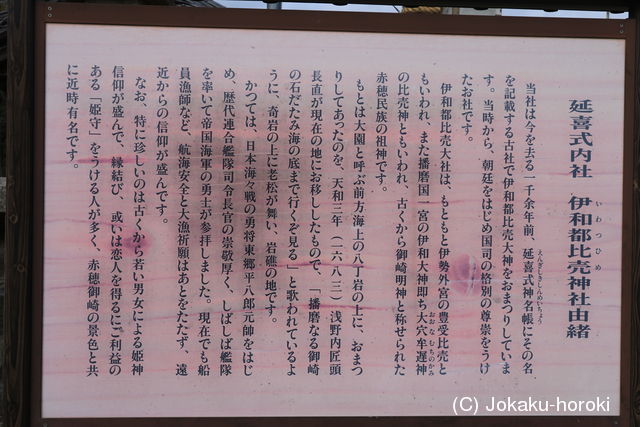 延喜式内社 伊和都比売神社由緒
いわつひめ
当社は今を去る一千余年前、延喜式神名帳にその名
えんぎしきしんめいちょう
を記載する古社で伊和都比売大神をおまつりしていま
す。当時から、朝廷をはじめ国司の格別の尊崇をうけ
たお社です。
伊和都比売大社は、もともと伊勢外宮の豊受比売と
もいわれ、また播磨国一宮の伊和大神即ち大穴牟遅神
おおなむちのかみ
の比売神ともいわれ、古くから御崎明神と称せられた
赤穂民族の祖神です。
もとは大園と呼ぶ前方海上の八丁岩の上に、おまつ
りしてあったのを、天和三年(一六八三)浅野内匠頭
長直が現在の地にお移ししたもので、「播磨なる御崎
の石だたみ海の底まで行くぞ見る」と歌われているよ
うに、奇岩の上に老松が舞い、岩礁の地です。
かつては、日本海々戦の勇将東郷平八郎元帥をはじ
め、歴代連合艦隊司令長官の崇敬厚く、しばしば艦隊
を率いて帝国海軍の勇士が参拝しました。現在でも船
員漁師など、航海安全と大漁祈願はあとをたたず、遠
近からの信仰が盛んです。
なお、特に珍しいのは古くから若い男女による姫神
信仰が盛んで、縁結び、或いは恋人を得るにご利益の
ある「姫守」をうける人が多く、赤穂御崎の景色と共
に近時有名です。
(C) Jokaku-horoki